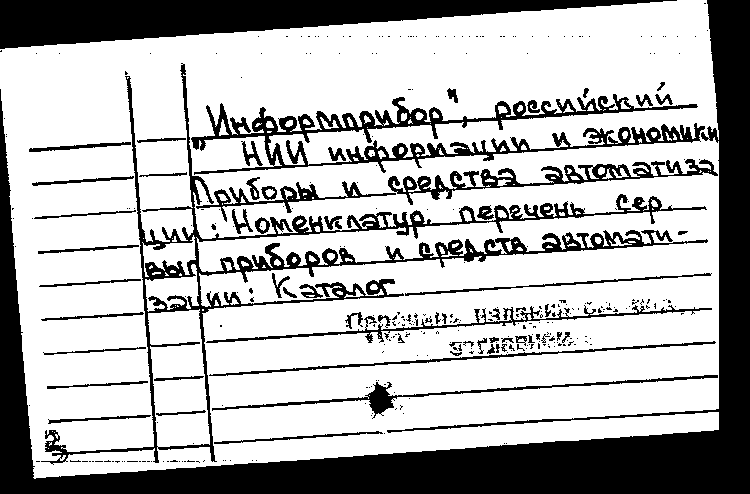 "Информприбор", российский
НИИ информации и экономики
Приборы и средства автоматиза
ции: Номенклатур. перечень сер.
вып приборов и средств автомати-
зации: Каталог
Перечень изданий см. на
отдельном